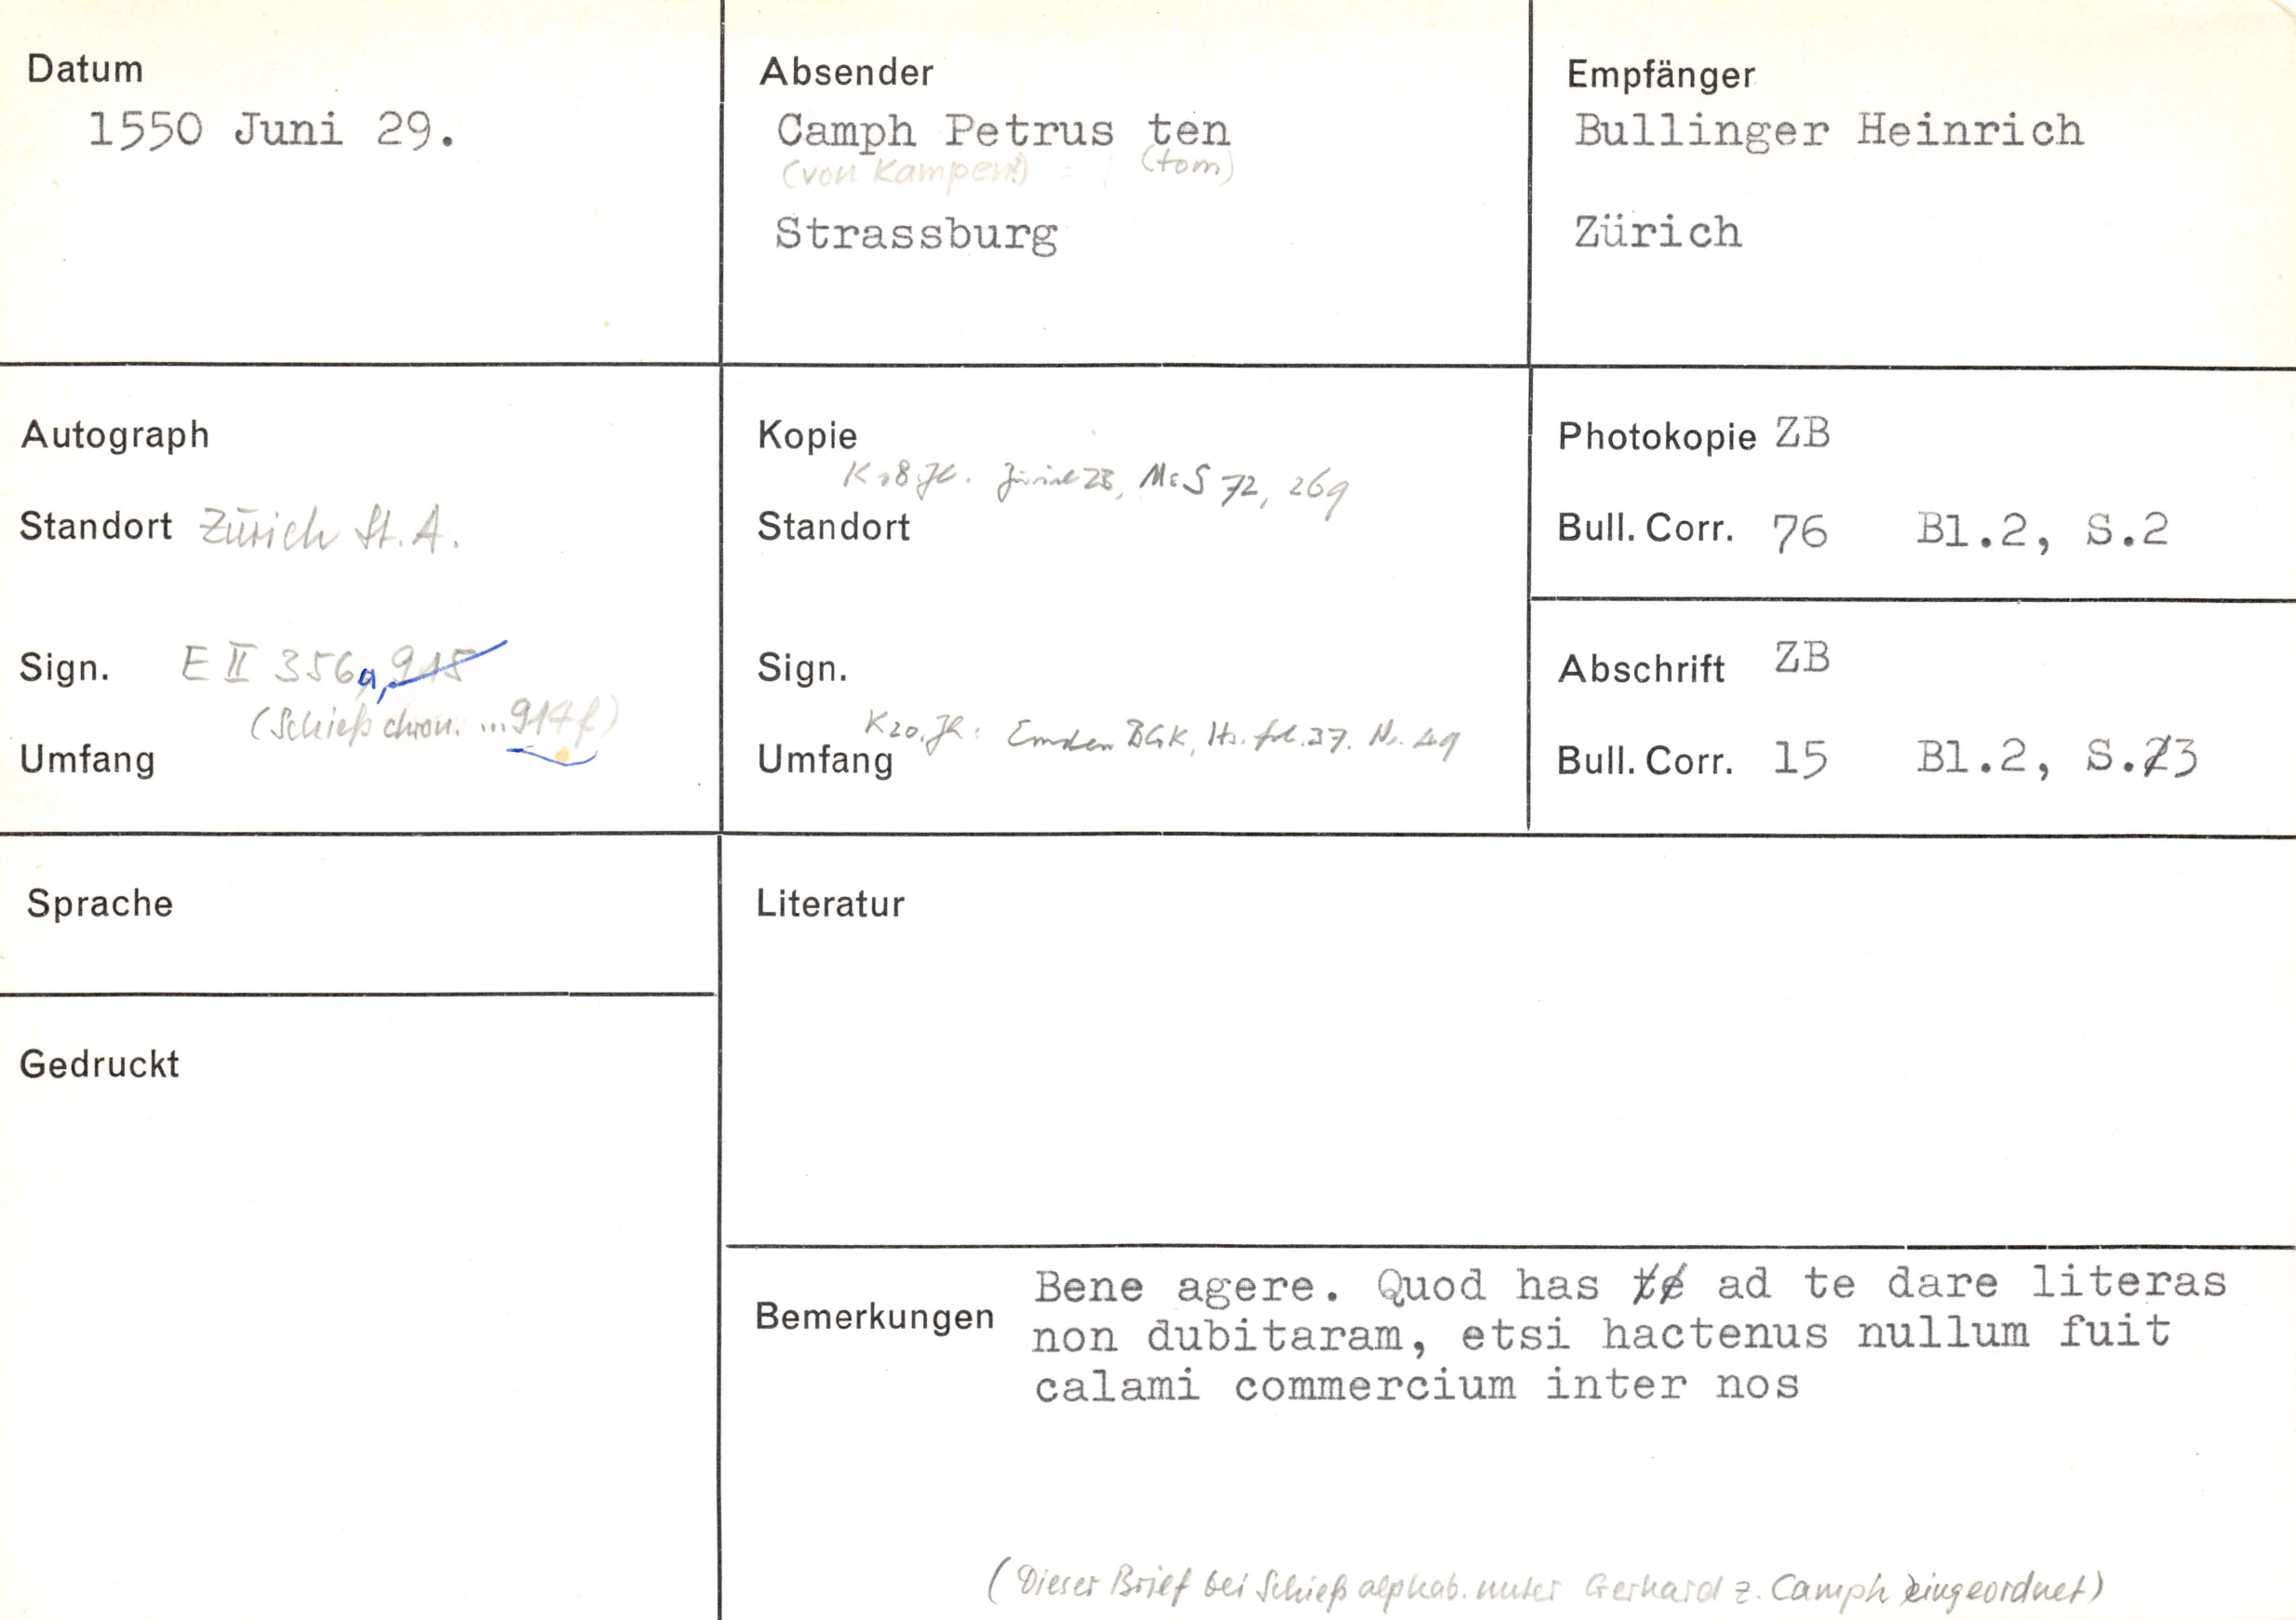 Datum
1550 Juni 29.
Absender
Camph Petrus ten
(von Kampen?) (tom)
Strassburg
Empfänger
Bullinger Heinrich
Zürich
Autograph
Standort Zürich St. A.
Sign. E II 356a, 915
(Schieß chron. ...914f)
Umfang
Kopie
K 18 Jh. Zürich ZB, Ms S 72, 269
Standort
Sign.
K 20. Jh: Emden BGK, Hs. fol. 37. Nr. 49
Umfang
Photokopie ZB
Bull. Corr. 76 Bl.2, S.2
Abschrift ZB
Bull. Corr. 15 Bl.2, S.23
Sprache
Gedruckt
Literatur
Bemerkungen
Bene agere. Quod has te ad te dare literas
non dubitaram, etsi hactenus nullum fuit
calami commercium inter nos
(Dieser Brief bei Schieß alphab. unter Gerhard z. Camph eingeordnet)